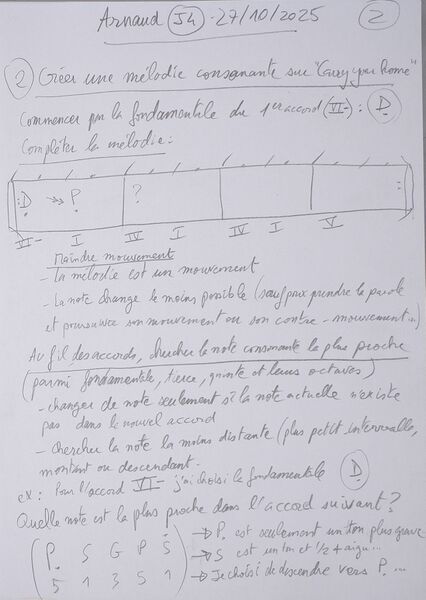 Arnaud (54) - 27/10/2025 (2)
(2) Créer une mélodie consonante sur "Carry your Home"
Commencer par la fondamentale du 1er accord (VI-) : (D)
Compléter la mélodie :
D → P. ?
VI- I IV I IV I V
Moindre mouvement
- La mélodie est un mouvement
- La note change le moins possible (sauf pour prendre la parole
et poursuivre son mouvement ou son contre-mouvement..)
Au fil des accords, chercher la note consonante la plus proche
(parmi fondamentale, tierce, quinte et leurs octaves)
- changer de note seulement si la note actuelle n'existe
pas dans le nouvel accord
- Chercher la note la moins distante (plus petit intervalle,
montant ou descendant.
ex : Pour l'accord VI- j'ai choisi la fondamentale (D)
Quelle note est la plus proche dans l'accord suivant ?
P. S G P S → P. est seulement un ton plus grave
5 1 3 5 1 → S est un ton et 1/2 + aigu...
→ Je choisi de descendre vers P. ...